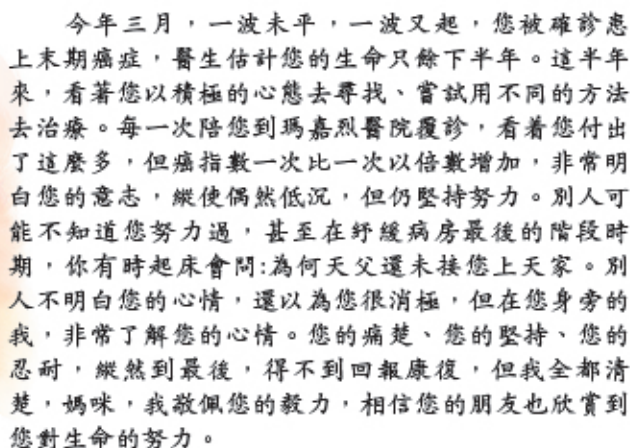 今年三月，一波未平，一波又起，您被確診患
上末期癌症，醫生估計您的生命只餘下半年。這半年
來，看著您以積極的心態去尋找、嘗試用不同的方法
去治療。每一次陪您到瑪嘉烈醫院覆診，看着您付出
了這麼多，但癌指數一次比一次以倍數增加，非常明
白您的意志，縱使偶然低沉，但仍堅持努力。別人可
能不知道您努力過，甚至在紓緩病房最後的階段時
期，你有時起床會問:為何天父還未接您上天家。別
人不明白您的心情，還以為您很消極，但在您身旁的
我，非常了解您的心情。您的痛楚、您的堅持、您的
忍耐，縱然到最後，得不到回報康復，但我全都清
楚，媽咪，我敬佩您的毅力，相信您的朋友也欣賞到
您對生命的努力。